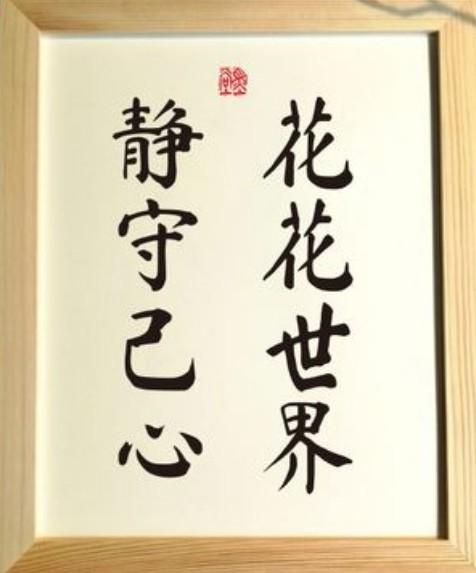 花花世界
静守己心